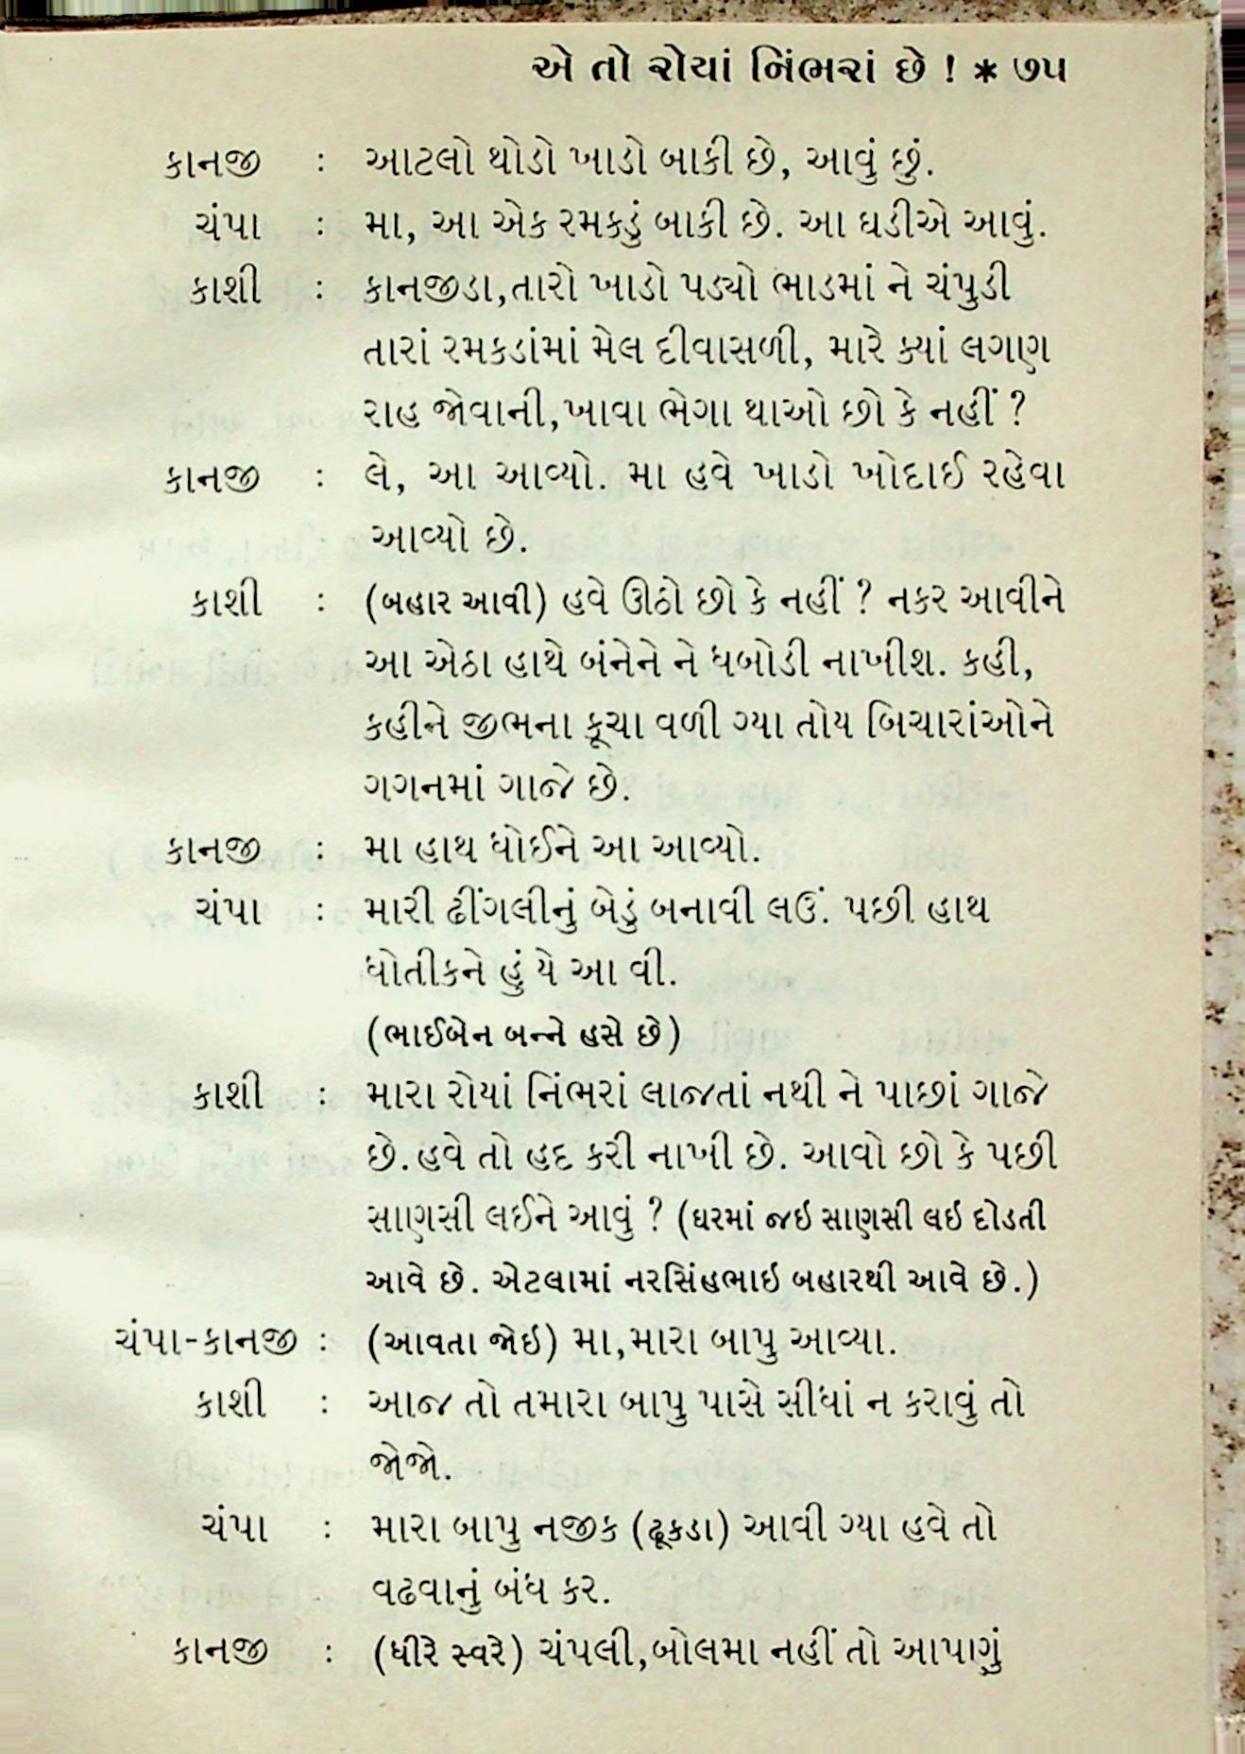 એ તો રોયાં નિંભરાં છે ! * ૭૫
કાનજી : આટલો થોડો ખાડો બાકી છે, આવું છું.
ચંપા : મા, આ એક રમકડું બાકી છે. આ ઘડીએ આવું.
કાશી : કાનજીડા,તારો ખાડો પડ્યો ભાડમાં ને ચંપુડી
તારાં રમકડાંમાં મેલ દીવાસળી, મારે ક્યાં લગણ
રાહ જોવાની,ખાવા ભેગા થાઓ છો કે નહીં ?
કાનજી : લે, આ આવ્યો. મા હવે ખાડો ખોદાઈ રહેવા
આવ્યો છે.
કાશી : (બહાર આવી) હવે ઊઠો છો કે નહીં ? નકર આવીને
આ એઠા હાથે બંનેને ને ધબોડી નાખીશ. કહી,
કહીને જીભના કૂચા વળી ગ્યા તોય બિચારાંઓને
ગગનમાં ગાજે છે.
કાનજી : મા હાથ ધોઈને આ આવ્યો.
ચંપા : મારી ઢીંગલીનું બેડું બનાવી લઉં. પછી હાથ
ધોતીકને હું યે આ વી.
(ભાઈબેન બન્ને હસે છે)
કાશી : મારા રોયાં નિંભરાં લાજતાં નથી ને પાછાં ગાજે
છે.હવે તો હદ કરી નાખી છે. આવો છો કે પછી
સાણસી લઈને આવું ? (ઘરમાં જઇ સાણસી લઇ દોડતી
આવે છે. એટલામાં નરસિંહભાઇ બહારથી આવે છે.)
ચંપા-કાનજી : (આવતા જોઇ) મા,મારા બાપુ આવ્યા.
કાશી : આજ તો તમારા બાપુ પાસે સીધાં ન કરાવું તો
જોજો.
ચંપા : મારા બાપુ નજીક (ઢૂકડા) આવી ગ્યા હવે તો
વઢવાનું બંધ કર.
કાનજી : (ધીરે સ્વરે) ચંપલી,બોલમા નહીં તો આપાગું